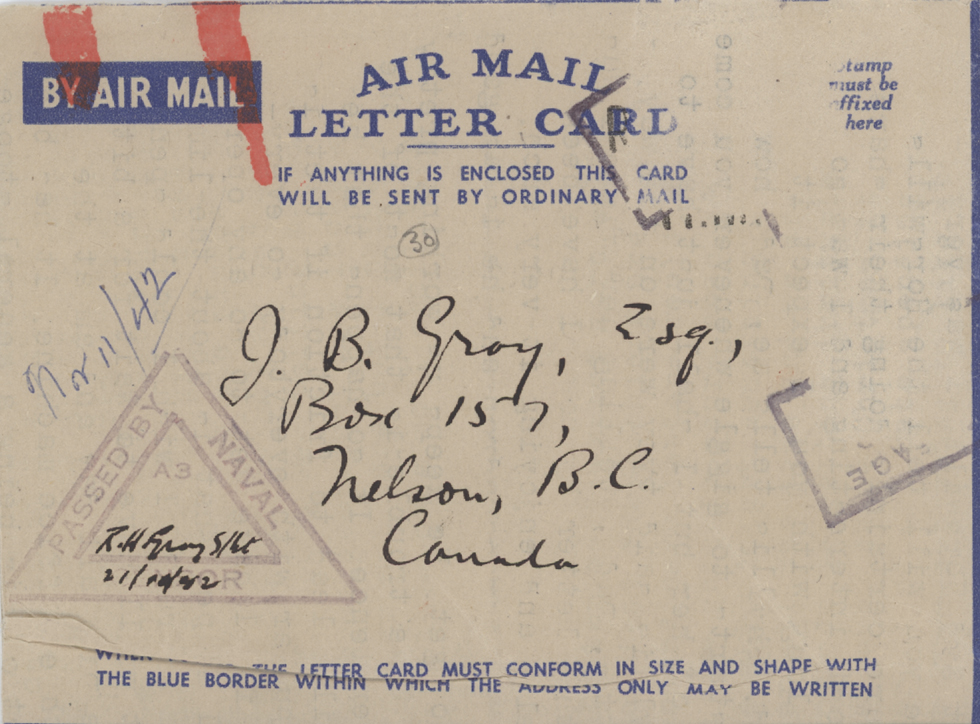 BY AIR MAIL
AIR MAIL
LETTER CARD
IF ANYTHING IS ENCLOSED THIS CARD
WILL BE SENT BY ORDINARY MAIL
tamp
must be
ffixed
here
30
Nov. 11/42
J. B. Gray, Esq.,
Box 157,
Nelson, B.C.
Canada
PASSED BY
NAVAL
A3
R.H Gray S/Lt
21/10/42
AGE
THE LETTER CARD MUST CONFORM IN SIZE AND SHAPE WITH
THE BLUE BORDER WITHIN WHICH THE ADDRESS ONLY MAY BE WRITTEN